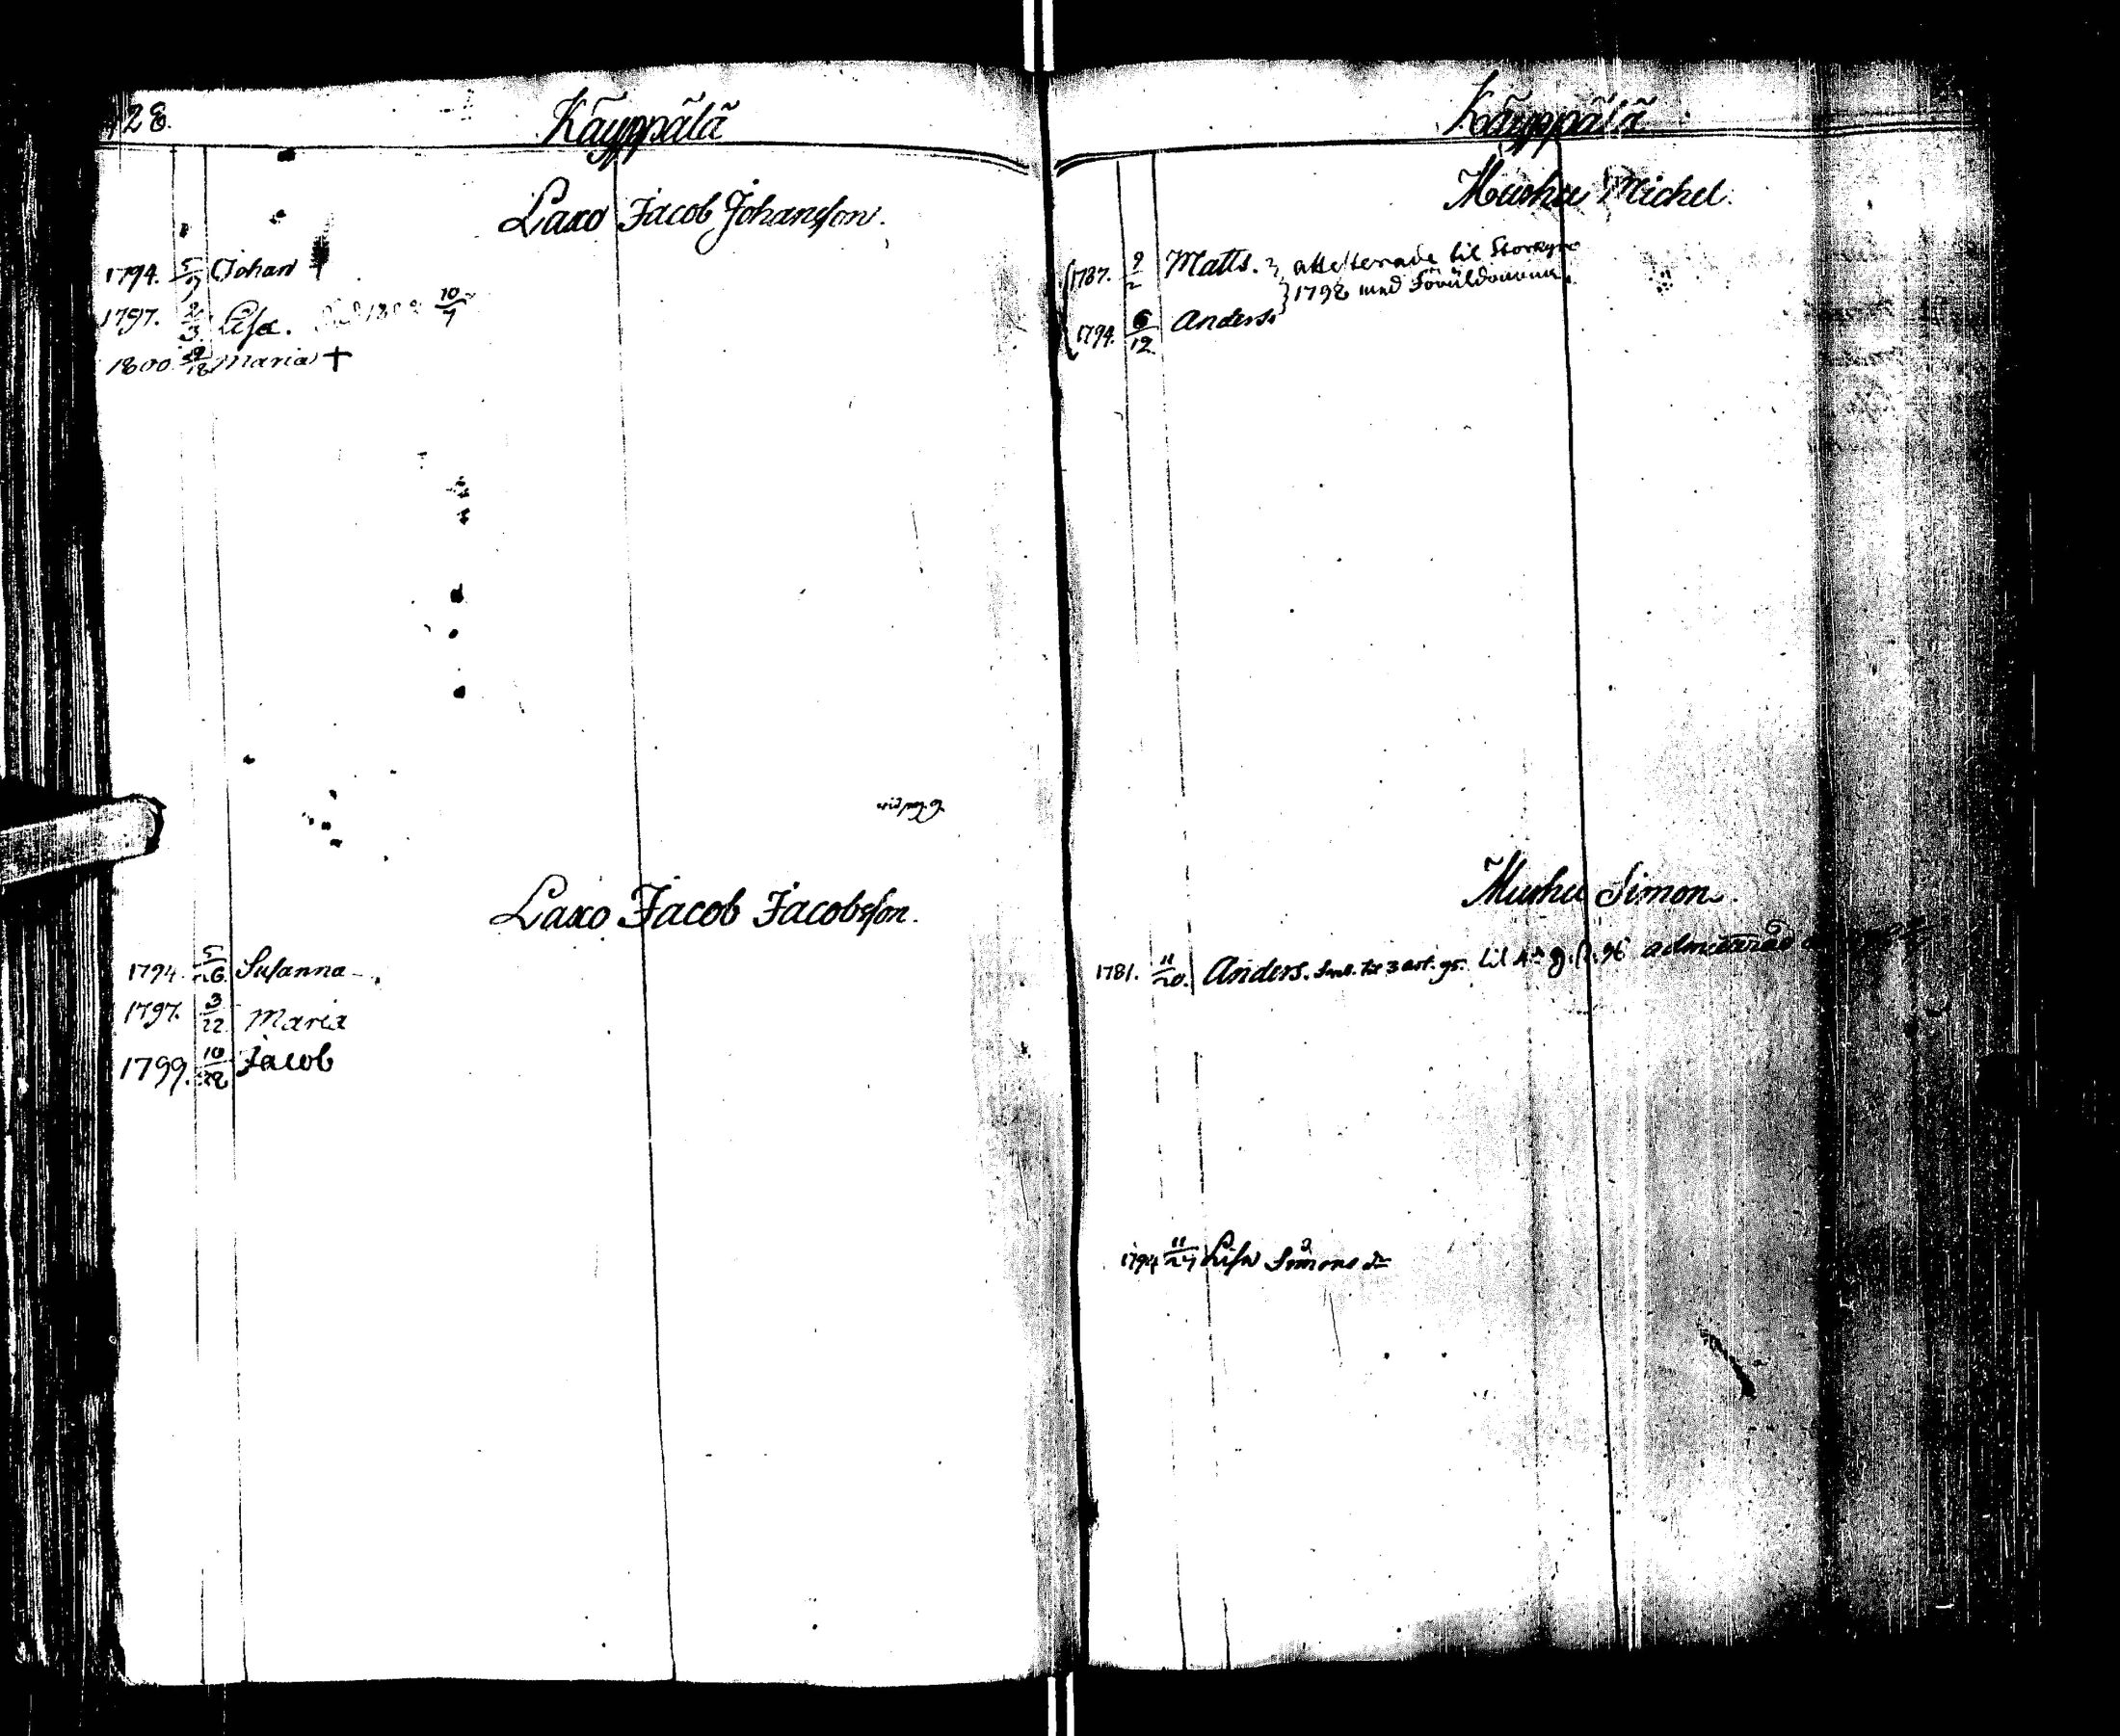 128.
Käyppälä
Laxo Jacob Johansson.
1794. 5/9 Johan †
1797. Lisa. 10/7
1800. Maria †
vid pag. 9
Laxo Jacob Jacobsson.
1794. 5/26. Susanna
1797. 3/22 Maria
1799. 10/28 Jacob
Käyppälä
Muhu Michel.
1787. 9/2 Matts. attesterade til Storkyro
1798 med Föräldrarna.
1794. 6/12. Anders
Muhu Simon.
1781. 11/20. Anders. til 3 art. 95. 96 admitterad
1794 11/27 Lisa Simons dr